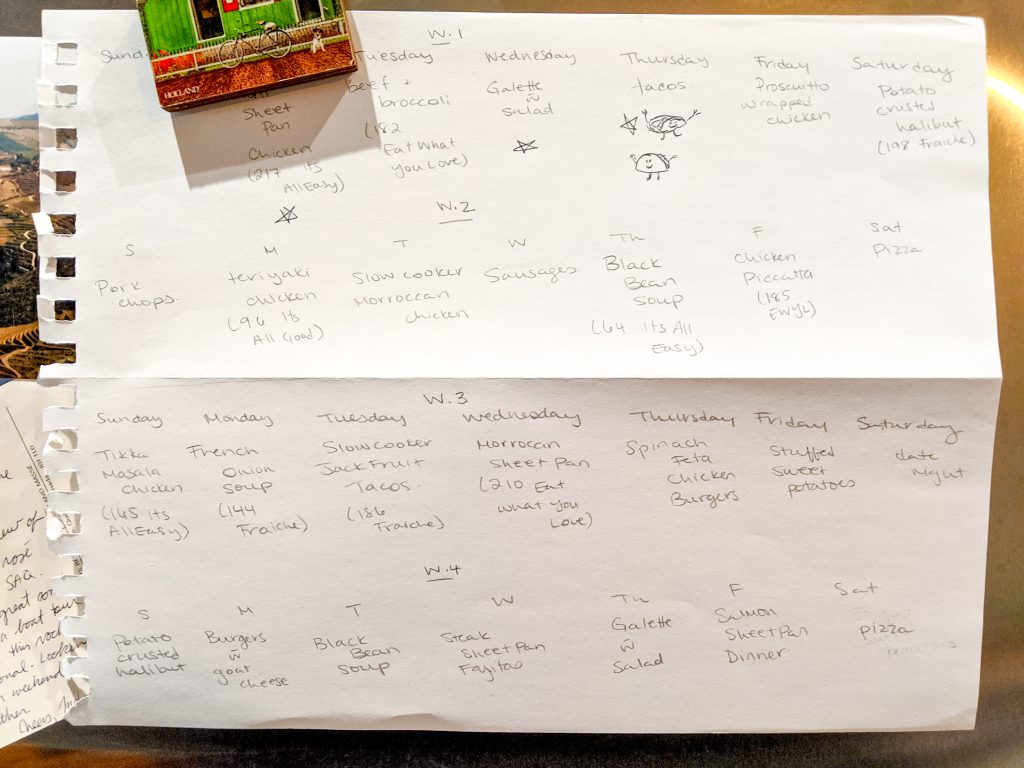 W.1
Tuesday
Wednesday
Thursday
Friday
Saturday
HOLLAND
Sheet
Pan
Chicken
(217 its
All Easy)
beef +
broccoli
(182
Eat What
you Love)
Galette
w
Salad
tacos
Proscuitto
wrapped
chicken
Potato
crusted
halibut
(198 Fraiche)
W.2
S
M
T
W
Th
F
Sat
Pork
chops.
teriyaki
chicken
(96 Its
All Good)
Slow cooker
Morroccan
chicken
Sausages
Black
Bean
Soup
(64 Its All
Easy)
chicken
Piccatta
(185
EWYL)
Pizza
W.3
Sunday
Monday
Tuesday
Wednesday
Thursday
Friday
Saturday
Tikka
Masala
chicken
(165 its
All Easy)
French
Onion
Soup
(144
Fraiche)
Slowcooker
Jackfruit
Tacos.
(186
Fraiche)
Morroccan
Sheet Pan
(210 Eat
what you
Love)
Spinach
Feta
chicken
Burgers
Stuffed
sweet
potatoes
date
night
W.4
S
M
T
W
Th
F
Sat
Potato
crusted
halibut
Burgers
w
goat
cheese
Black
Bean
Soup
Steak
Sheet Pan
Fajitas
Galette
w
Salad
Salmon
Sheet Pan
Dinner
pizza
rosé
SAQ.
great
a boat tour
this
weekend
Cheers,